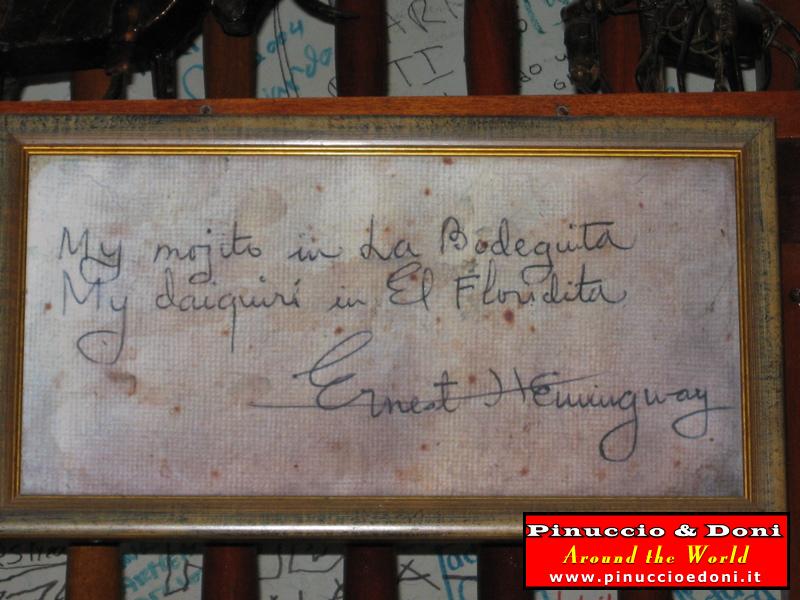 ARK
TI
My mojito in La Bodeguita
My daiquiri in El Floridita
Ernest Hemingway
Pinuccio & Doni
Around the World
www.pinuccioedoni.it